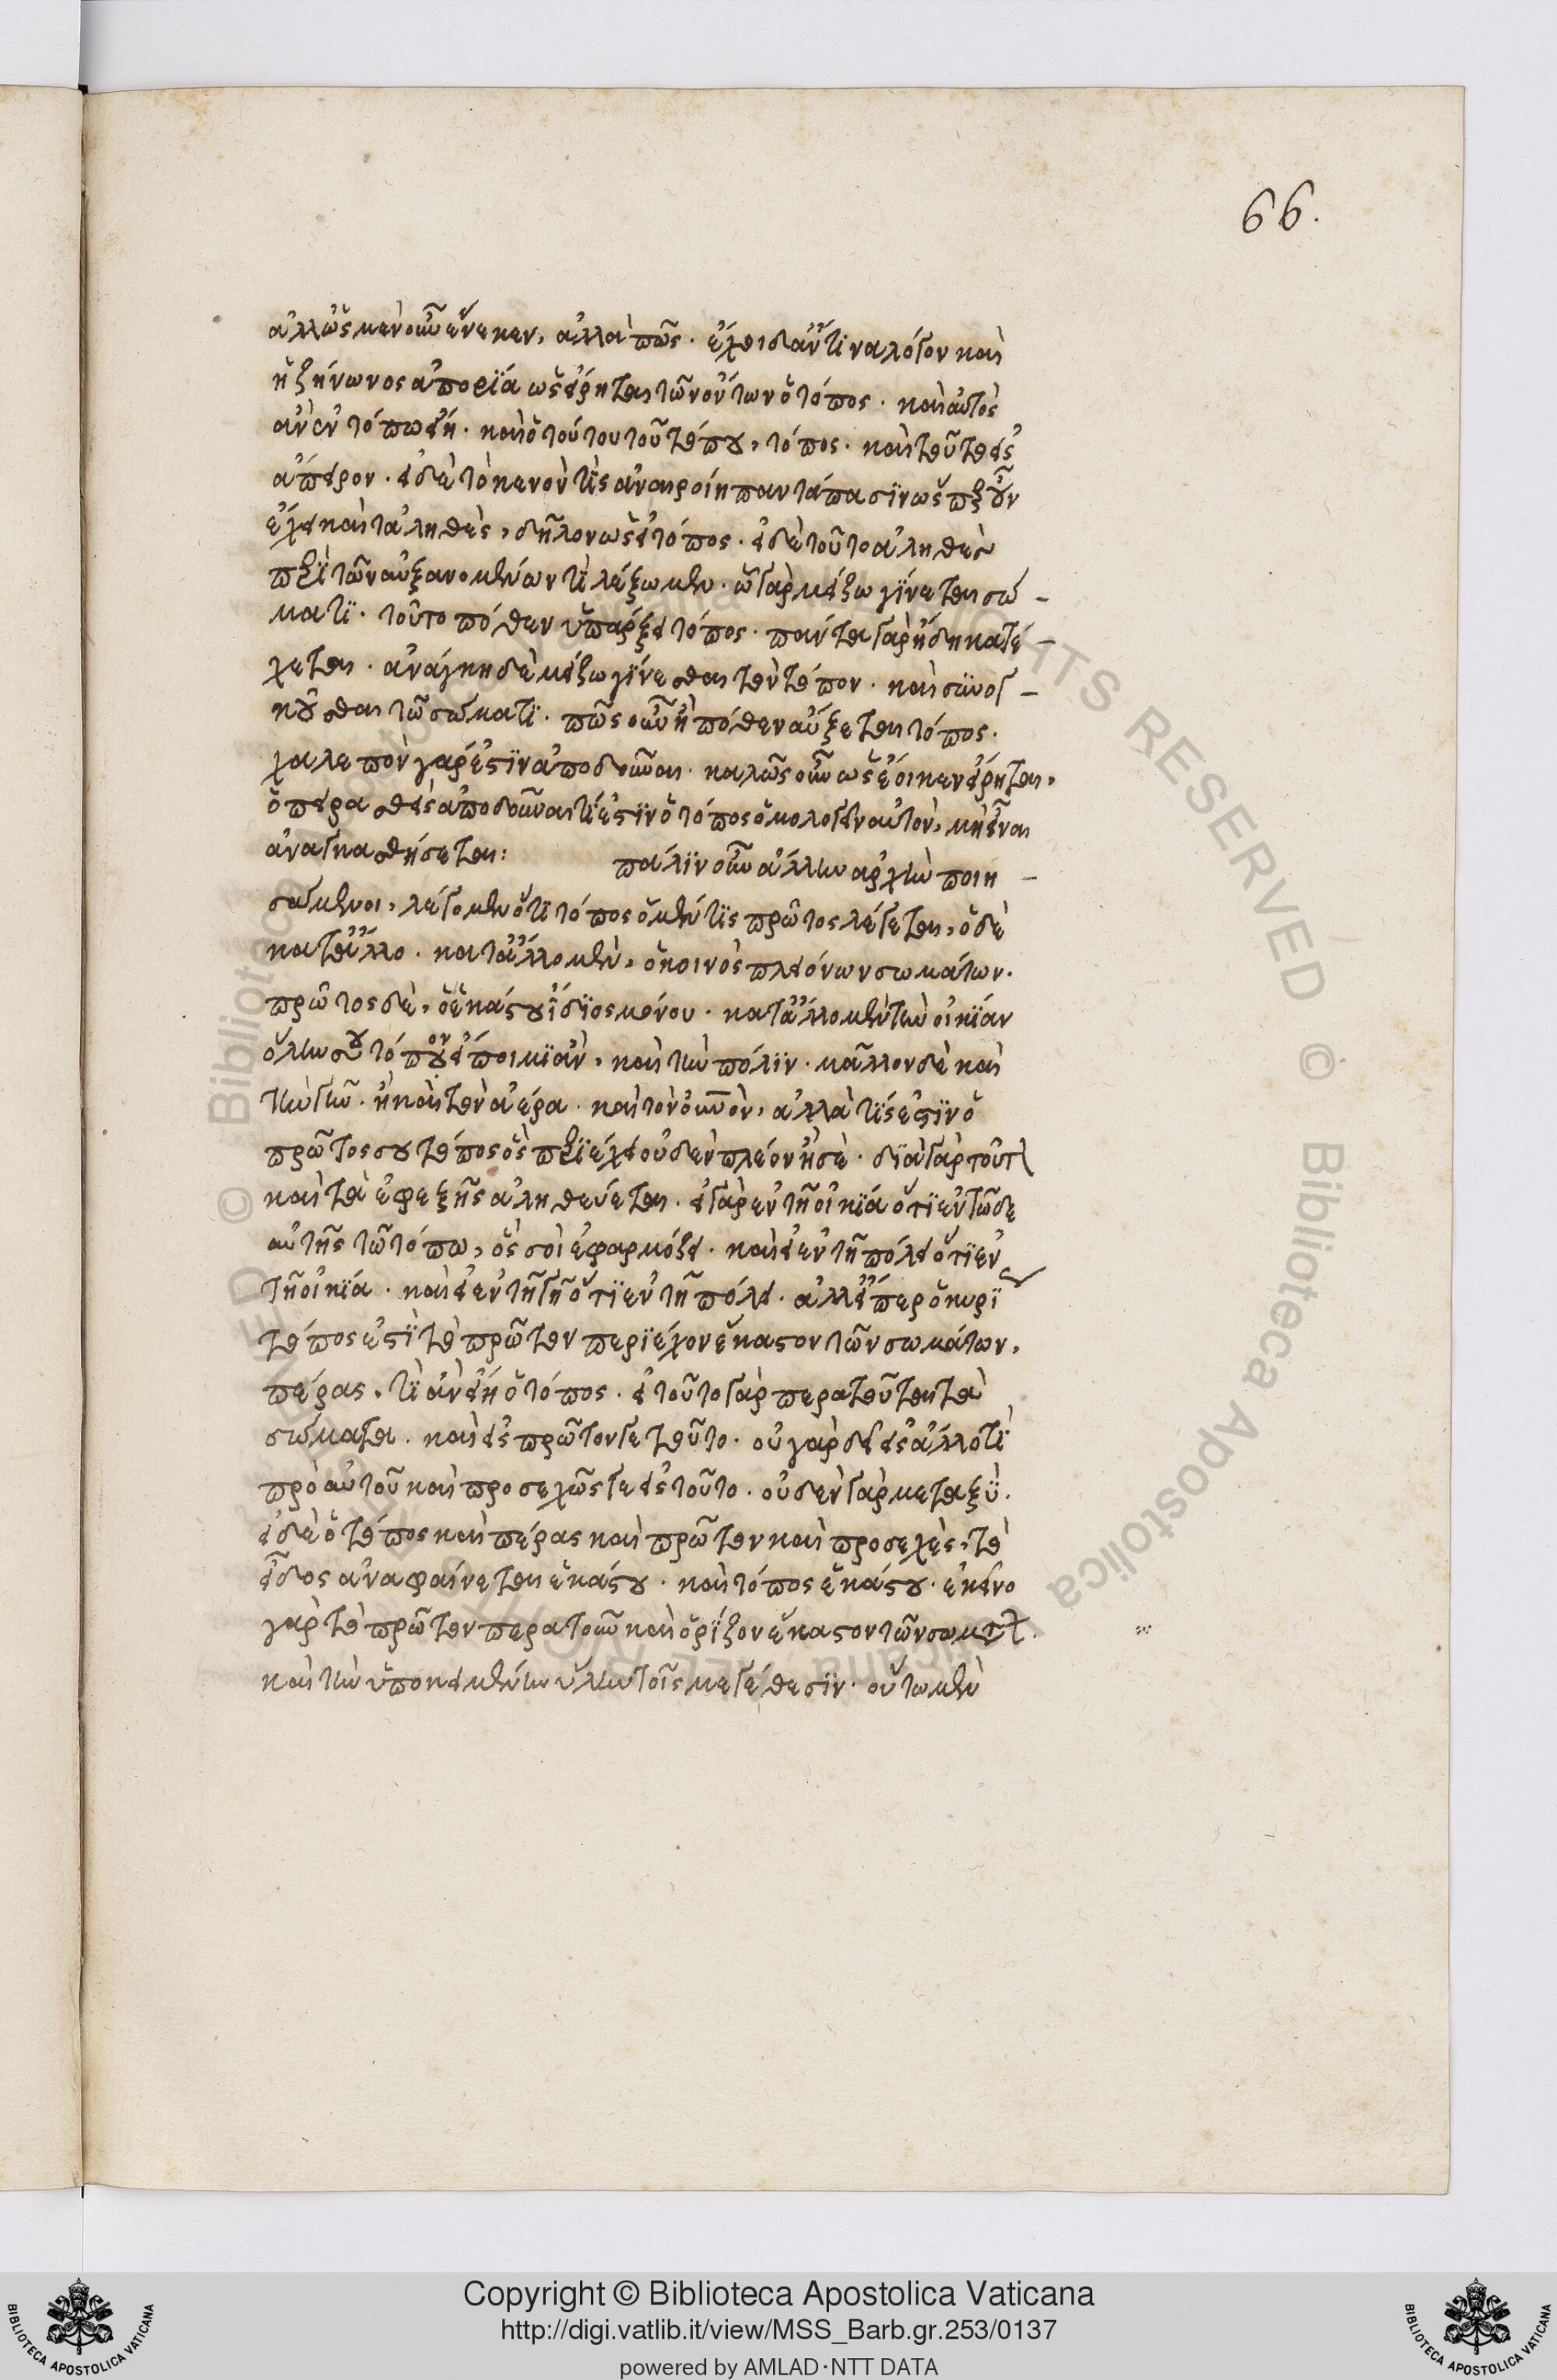 66.
ἄλλως μὲν οὖν ἕνεκεν, ἀλλὰ πῶς. ἔχει δ' ἄν τινα λόγον καὶ
ἡ ζήνωνος ἀπορία ὡς εἴρηται τῶν ὄντων ὁ τόπος. καὶ αὐτὸς
ἂν ἐν τόπω εἴη. καὶ ὁ τούτου τοῦ τόπου, τόπος. καὶ τοῦτο εἰς
ἄπειρον. εἰ δὲ τὸ κενόν τις ἀναιροίη παντάπασιν ὡς
ἔχει καὶ τἀληθὲς, δῆλον ὡς εἰ τόπος. εἰ δὲ τοῦτο ἀληθὲς
περὶ τῶν αὐξανομένων τί λέξωμεν. ὧ γὰρ μείζω γίνεται σώ-
ματι. τοῦτο πόθεν ὑπάρξει τόπος. πάντα γὰρ ἤδη κατέ-
χεται. ἀνάγκη δὲ μείζω γίνεσθαι τὸν τόπον. καὶ συνογ-
κοῦσθαι τῶ σώματι. πῶς οὖν ἢ πόθεν αὔξεται τόπος.
χαλεπὸν γάρ ἐστιν ἀποδοῦναι. καλῶς οὖν ὡς ἔοικεν εἴρηται,
ὁ πειραθεὶς ἀποδοῦναι τί ἐστιν ὁ τόπος ὁμολογεῖν αὐτὸν, μὴ εἶναι
ἀναγκασθήσεται: πάλιν οὖν ἄλλην ἀρχὴν ποιη-
σάμενοι, λέγομεν ὅτι τόπος ὁ μέν τις πρῶτος λέγεται, ὁ δὲ
κατ' ἄλλο. κατ' ἄλλο μὲν, ὁ κοινὸς πλειόνων σωμάτων.
πρῶτος δὲ, ὁ ἑκάστου ἴδιος μόνου. κατ' ἄλλο μὲν τὴν οἰκίαν
ὅλην σοῦ τόπον εἴποιμι ἂν, καὶ τὴν πόλιν. μᾶλλον δὲ καὶ
τὴν γῆν. ἢ καὶ τὸν ἀέρα. καὶ τὸν οὐνὸν, ἀλλὰ τίς ἐστιν ὁ
πρῶτος σου τόπος ὃς περιέχει οὐδὲν πλέον ἢ σὲ. διὰ γὰρ τοῦτον
καὶ τὰ ἐφεξῆς ἀληθεύεται. εἰ γὰρ ἐν τῆ οἰκία ὅτι ἐν τῶδε
αὐτῆς τῶ τόπω, ὅς σοι ἐφαρμόζει. καὶ εἰ ἐν τῆ πόλει ὅτι ἐν
τῆ οἰκία. καὶ εἰ ἐν τῆ γῆ ὅτι ἐν τῆ πόλει. ἀλλ' εἴπερ ὁ κυρί
τόπος ἐστὶ τὸ πρῶτον περιέχον ἕκαστον τῶν σωμάτων,
πέρας, τὶ ἂν εἴη ὁ τόπος. εἰ τοῦτο γὰρ περατοῦται τὰ
σώματα. καὶ εἰς πρῶτόν γε τοῦτο. οὐ γὰρ δὴ εἰς ἄλλό τι
πρὸ αὐτοῦ καὶ προσεχῶς γε εἰς τοῦτο. οὐδὲν γὰρ μεταξὺ.
εἰ δὲ ὁ τόπος καὶ πέρας καὶ πρῶτον καὶ προσεχὲς, τὸ
εἶδος ἀναφαίνεται ἑκάστου. καὶ τόπος ἑκάστου. ἐκεῖνο
γὰρ τὸ πρῶτον περατοῦν καὶ ὁρίζον ἕκαστον τῶν σωμάτων.
καὶ τὴν ὑποκειμένην ὕλην τοῖς μεγέθεσιν. οὕτω μὲν
Copyright © Biblioteca Apostolica Vaticana
http://digi.vatlib.it/view/MSS_Barb.gr.253/0137
powered by AMLAD·NTT DATA